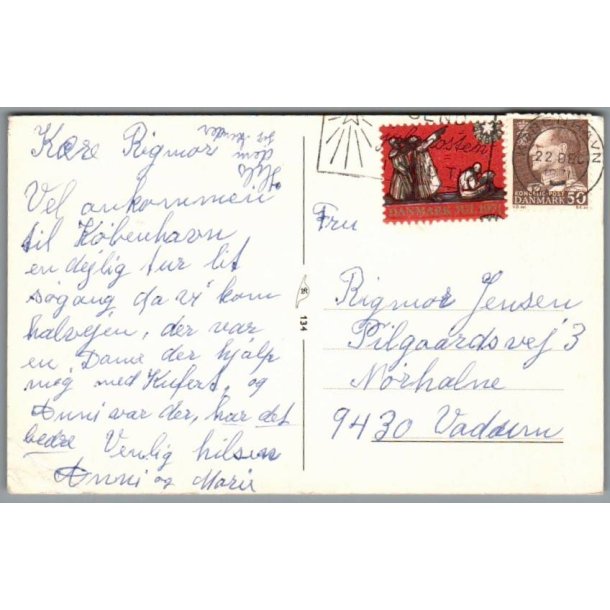 Kære Rigmor
Hils
dem
Vel ankommen
til København
en dejlig tur lit
søgang da vi kom
halvejen, der var
en Dame der hjalp
mig med Kufert, og
Anni var der, har det
bedre Venlig hilsen
Anni og Marie
134
DANMARK JUL
22 DEC
KONGELIG POST
DANMARK 50
Fru
Rigmor Jensen
Pilgaardsvej 3
Nørhalne
9430 Vadum